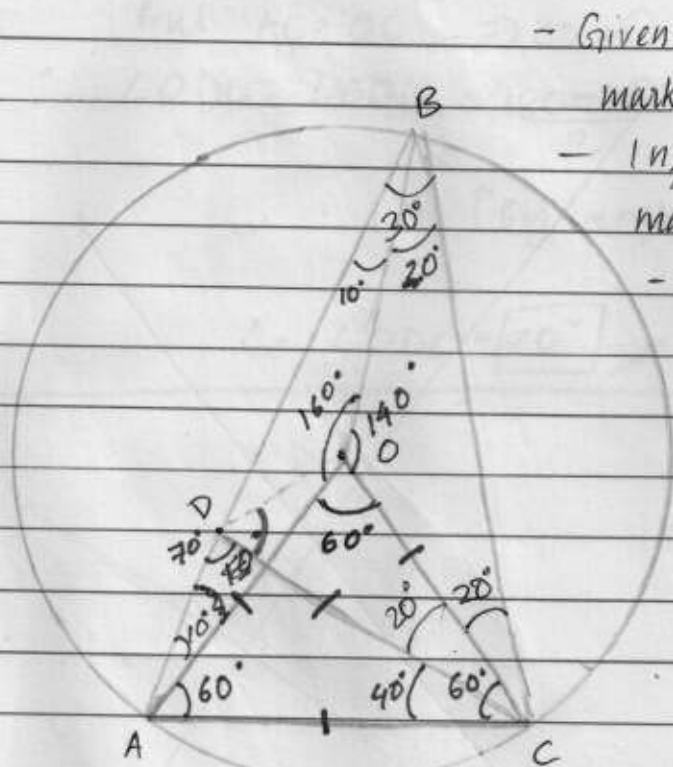 - Given
mark
B
- In
ma
30°
20°
10°
-
160°
140°
O
D
60°
70°
20°
20°
60°
40°
60°
A
C